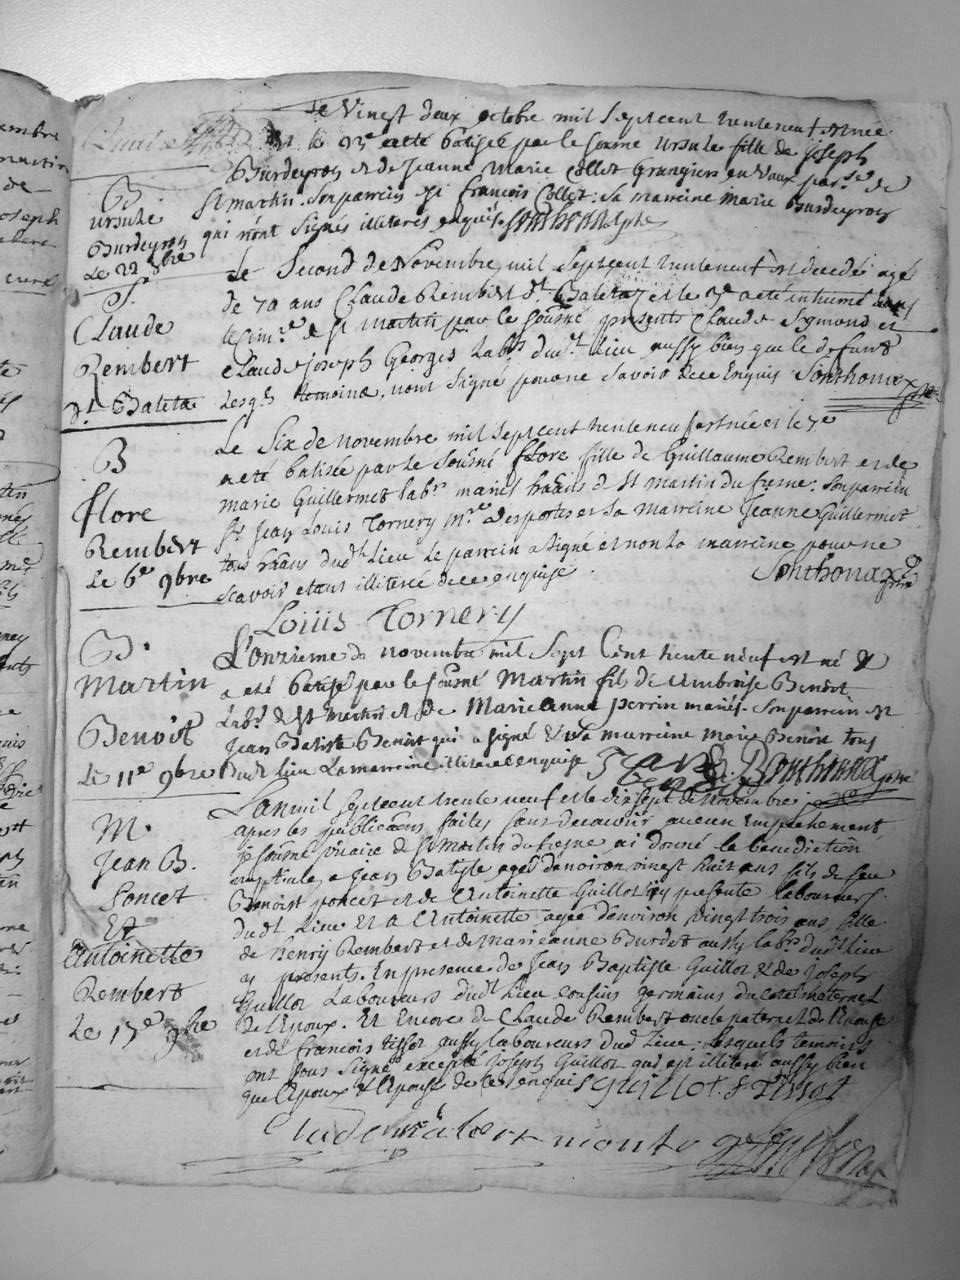 Le Vinst deux octobre mil septcent trenteneuf est née
et le 23e a eté batisée par le soussné ursule fille de joseph
Burdeyron et de jeanne Marie Collet Grangiers en Vaux par.sse de
St martin. Son parrin est francois Collet : sa marreine marie Burdeyron
qui n'ont signés illiterés enquis. Sonthonax ptre
B
ursule
Burdeyron
Le 22 8bre
Le Second de Novembre, mil septcent trenteneuf est decedé agé
de 70 ans Claude Rembert dt Baleta et le 3e a eté inhumé dans
le Cim.re de St martin par le soussné presents Claude Sigmond et
Claude joseph Georges lab.rs dud.t lieu aussy bien que le defunt
Lesq.ls temoins, n'ont signé pour ne savoir de ce Enquis Sonthonax ptre
S.
Claude
Rembert
dt Baleta
Le Six de novembre mil septcent trenteneuf est née et le 7e
a eté batisée par le soussné flore fille de Guillaume Rembert et de
marie Guillermet lab.rs mariés hâans de St martin du fresne. Son parrein
Sr jean Louis Tornery m.re Desportes et sa marreine jeanne Guillermet
tous hâans dud.t Lieu le parrein a signé et non la marreine pour ne
scavoir etant illiteré de ce enquise. Sonthonax ptre
Louis Tornery
B
flore
Rembert
Le 6e 9bre
L'onzieme de novembre mil Sept Cent trente neuf est né &
a eté batisé par le soussné Martin fils de Ambroise Benoit
lab.r de St martin et de Marieanne perrin mariés. Son parrein est
jean Batiste Benoit qui a signé & sa marreine marie Benoit tous
Dud.t lieu La marreine illiteré enquise Sonthonax ptre
B.
Martin
Benoit
Le 11e 9bre
L'an mil septcent trente neuf et le dixsept de novembre
apres les publicaōns faites sans decouvrir aucun Empechement
je soussné vicaire de St martin du fresne ai donné la benediction
nuptiale, a jean Batiste agé denviron vinst huit ans fils de feu
Benoist poncet et de Antoinette Guillot icy presente laboureurs
Dud.t Lieu Et a Antoinette agée d'environ vingt trois ans fille
de henry Rembert et de marieanne Burdet aussy lab.rs dud.t lieu
icy presents. En presence de jean Baptiste Guillot & de joseph
Guillot Laboureurs dud.t lieu cousins germains du coté maternel
de l'epoux. Et Encore de Claude Rembert oncle paternel de l'epouse
et de francois tissot aussy laboureurs dud.t Lieu : lesquels temoins
ont sous signé excepté joseph Guillot qui est illiteré aussy bien
que l'epoux & l'epouse de ce enquis Guillot f Tissot
M.
Jean B.
Poncet
Et
Antoinette
Rembert
Le 17e 9bre